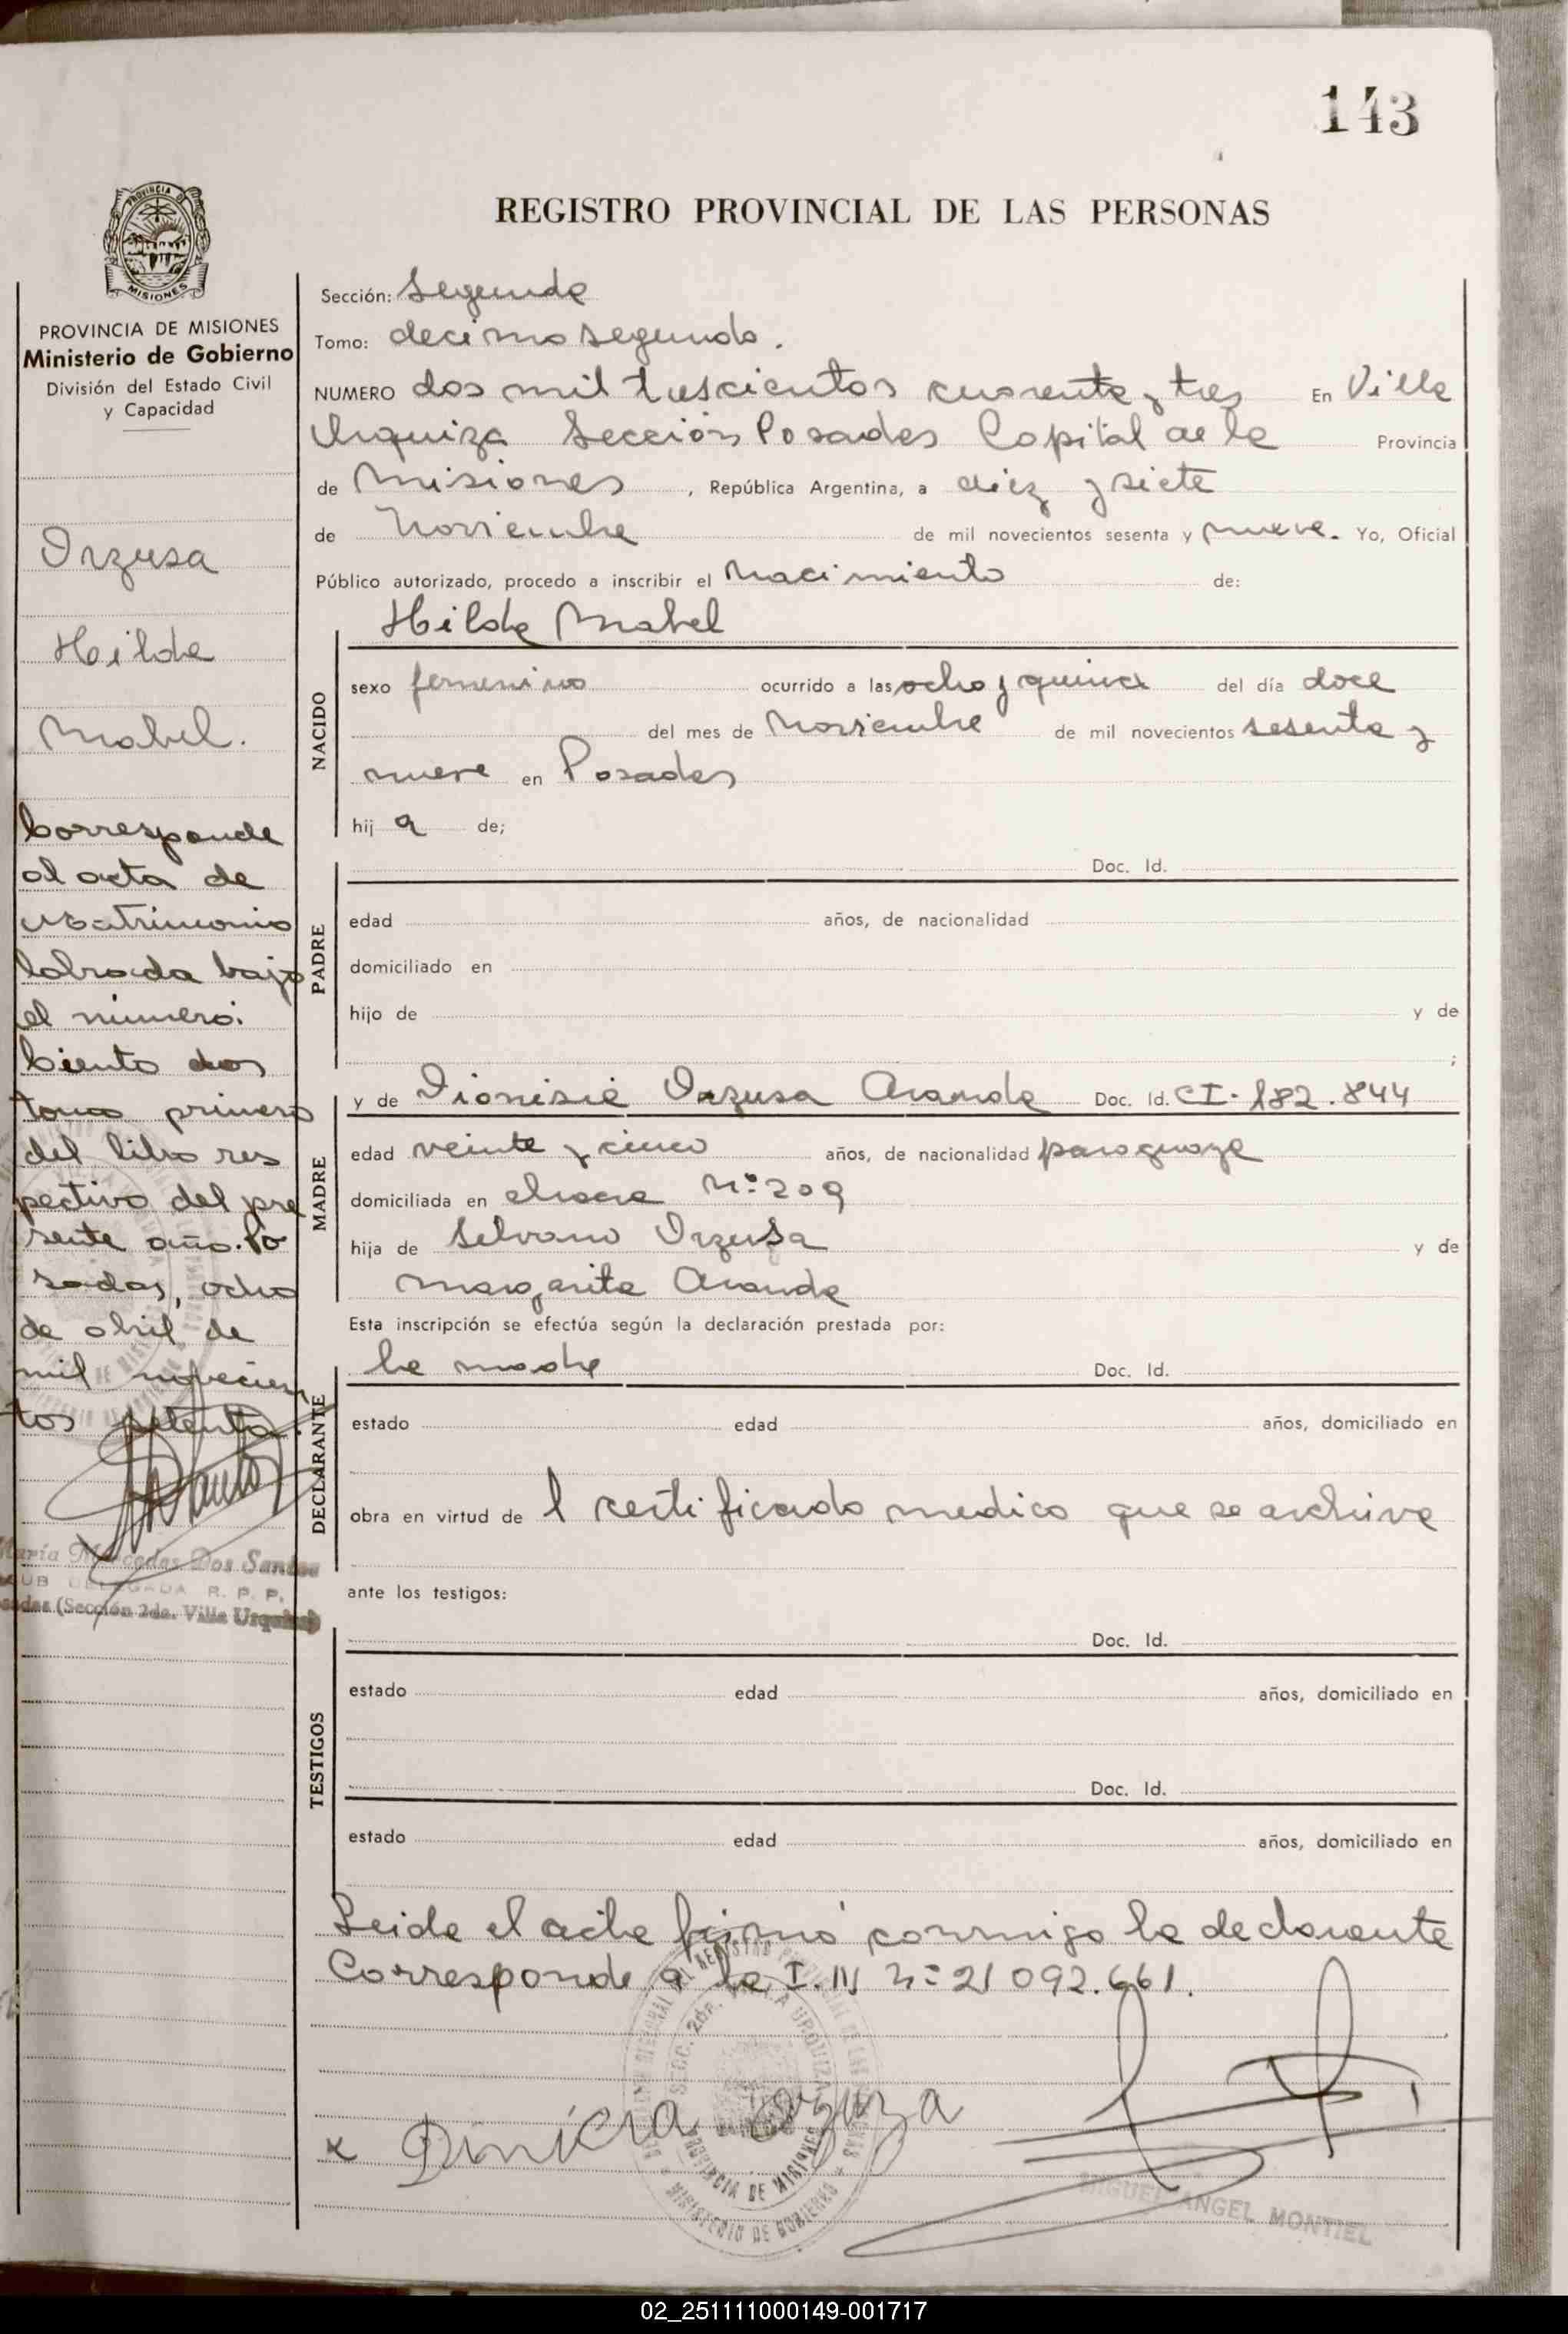 143
REGISTRO PROVINCIAL DE LAS PERSONAS
PROVINCIA DE MISIONES
Ministerio de Gobierno
División del Estado Civil
y Capacidad
Orzusa
Hilda
Mabel.
Corresponde
al acta de
Matrimonio
labrada bajo
el número:
Ciento dos
tomo primero
del libro res
pectivo del pre
sente año. Po
sadas, ocho
de abril de
mil novecien
tos setenta.
María Mercedes Dos Santos
SUB DELEGADA R. P. P.
(Sección 2da. Villa Urquiza)
Sección: Segunda
Tomo: decimo segundo.
NUMERO dos mil trescientos cuarenta y tres En Villa
Urquiza Sección Posadas Capital de la Provincia
de Misiones, República Argentina, a diez y siete
de Noviembre de mil novecientos sesenta y nueve. Yo, Oficial
Público autorizado, procedo a inscribir el Nacimiento de:
Hilda Mabel
NACIDO
sexo femenino ocurrido a las ocho y quince del día doce
del mes de Noviembre de mil novecientos sesenta y
nueve en Posadas
hij a de;
PADRE
Doc. Id.
edad años, de nacionalidad
domiciliado en
hijo de y de
;
MADRE
y de Dionisia Orzusa Aranda Doc. Id. CI. 182.844
edad veinte y cinco años, de nacionalidad paraguaya
domiciliada en chacra Nº 209
hija de Silvano Orzusa y de
Margarita Aranda
Esta inscripción se efectúa según la declaración prestada por:
DECLARANTE
la madre Doc. Id.
estado edad años, domiciliado en
obra en virtud de l certificado medico que se archiva
ante los testigos:
TESTIGOS
Doc. Id.
estado edad años, domiciliado en
Doc. Id.
estado edad años, domiciliado en
Leida el acta firmó conmigo la declarante
Corresponde a la I. M Nº 21 092.661.
x Dinicia Orzuza
MIGUEL ANGEL MONTIEL
02_251111000149-001717